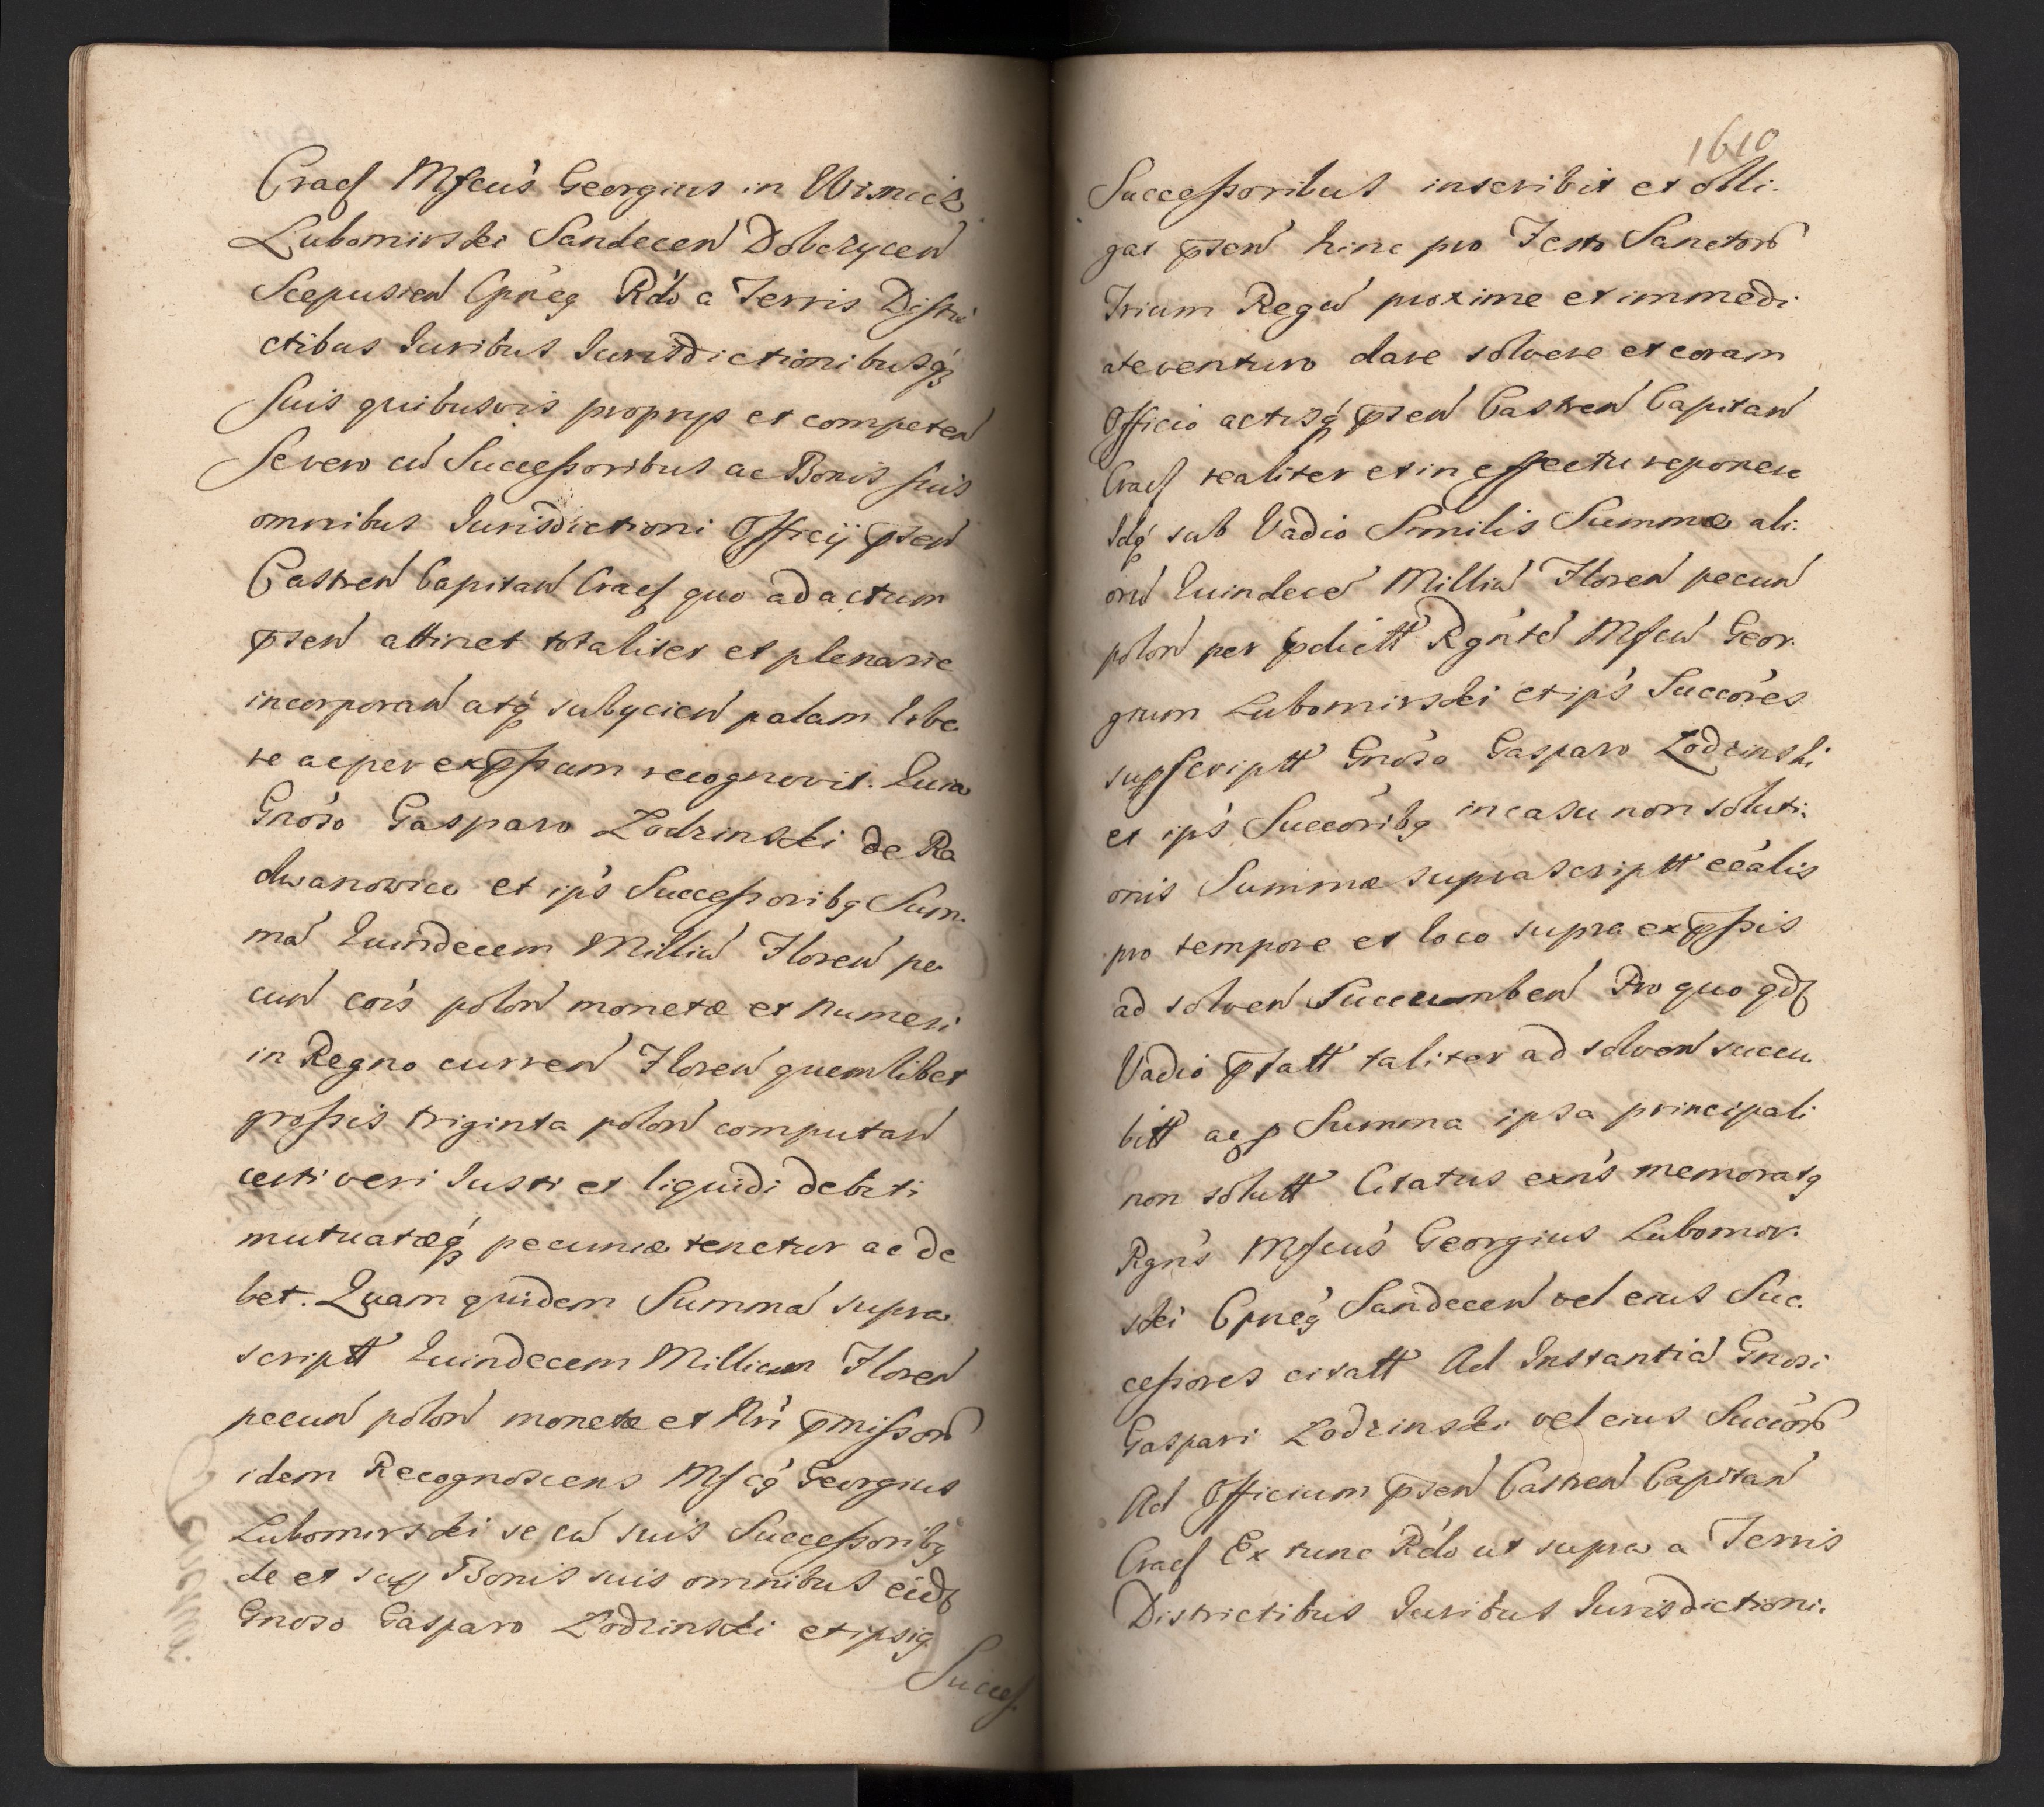 Cracẜ Mfcus Georgius in Wisnicz
Lubomirski Sandecen Dobczycen
Scepusien Cpneq Rdo a Terris Distri
ctibus Iuribus Iurisdictionibusq
suis quibusvis proprys et competen
se vero cu Successoribus ac Bonis suis
omnibus Iurisdictioni Officij pñen
Castren Capitan Cracẜ quo ad actum
pñen attinet totaliter et plenarie
incorporan atq subycien palam libe
re ac per expssum recognovit. Quia
Gnoso Gasparo Zodzinski de Ra
dwanowice et ips Successoribq Sum.
ma Quindecem Milliu Floren pe
cun cois polon monetæ et numeri
in Regno curren Floren quemlibet
grossis triginta polon computan
certi veri Iusti et liquidi debiti
mutuatæq pecuniæ tenetur ac de
bet. Quam quidem Summa supra
scriptt Quindecem Millium Floren
pecun polon monetæ et Nri pmissoru
idem Recognoscens Mfcq Georgius
Lubomirski se cu suis Successoribq
de et sup Bonis suis omnibus eidẜ
Gnoso Gasparo Zodzinski et ipsiq
Succes.
1610
Successoribus inscribit et obli.
gat pñen hinc pro Festo Sanctoru
Trium Regu proxime et immedi
ate venturo dare solvere et coram
Officio actisq pñen Castren Capitan
Cracẜ realiter et in effectu reponere
Idq sub Vadio Similis Summæ ali.
oru Quindece Milliu Floren pecun
polon per pdictt Rgnte Mfcu Geor.
gium Lubomirski et ips Succores
supscriptt Gnoso Gasparo Zodzinski
et ips Succoribq in casu non soluti.
onis Summæ suprascriptt eealis
pro tempore et loco supra expssis
ad solven Succumben Pro quo qdẜ
Vadio pfatt taliter ad solven succu.
bitt ac p Summa ipsa principali
non solutt Citatus exns memoratq
Rgns Mfcus Georgius Lubomir.
ski Cpneq Sandecen vel eius Suc.
cessores citatt Ad Instantia Gnosi
Gaspari Zodzinski vel eius Succoru
Ad Officium pñen Castren Capitan
Cracẜ Ex tunc Rdo ut supra a Terris
Districtibus Iuribus Iurisdictioni.